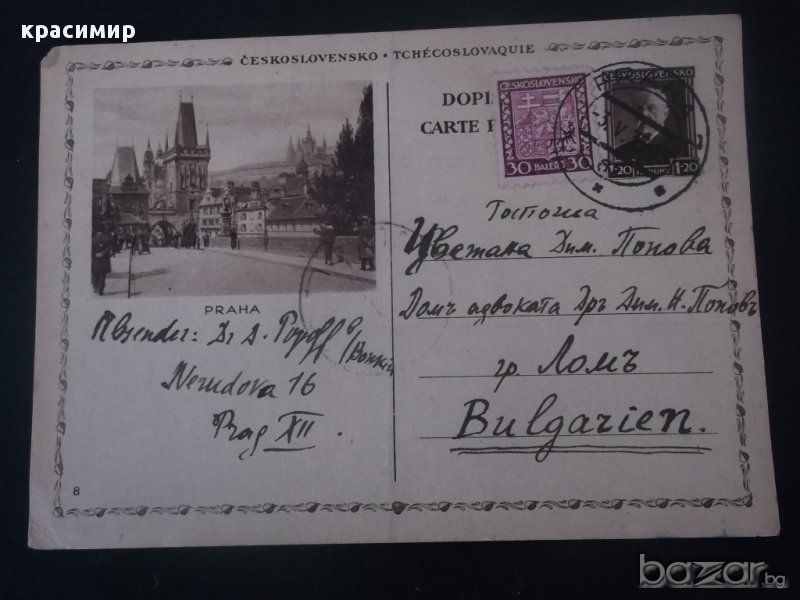 красимир
ČESKOSLOVENSKO • TCHÉCOSLOVAQUIE
DOPI
CARTE P
ČESKOSLOVENSKO
30 HALÉŘŮ 30
ČESKOSLOVENSKO
1·20 KORUNY 1·20
PRAHA
Госпожа
Цветана Дим. Попова
Домъ адвоката Дръ Дим. Н. Поповъ
гр. Ломъ
Bulgarien.
Absender: Dr D. Popoff
Nerudova 16
Prag XII.
8
bazar.bg